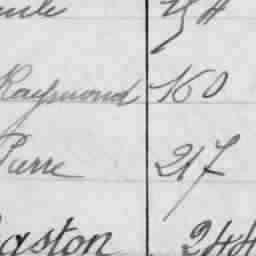 Raymond 160
Pierre 217
Gaston 244